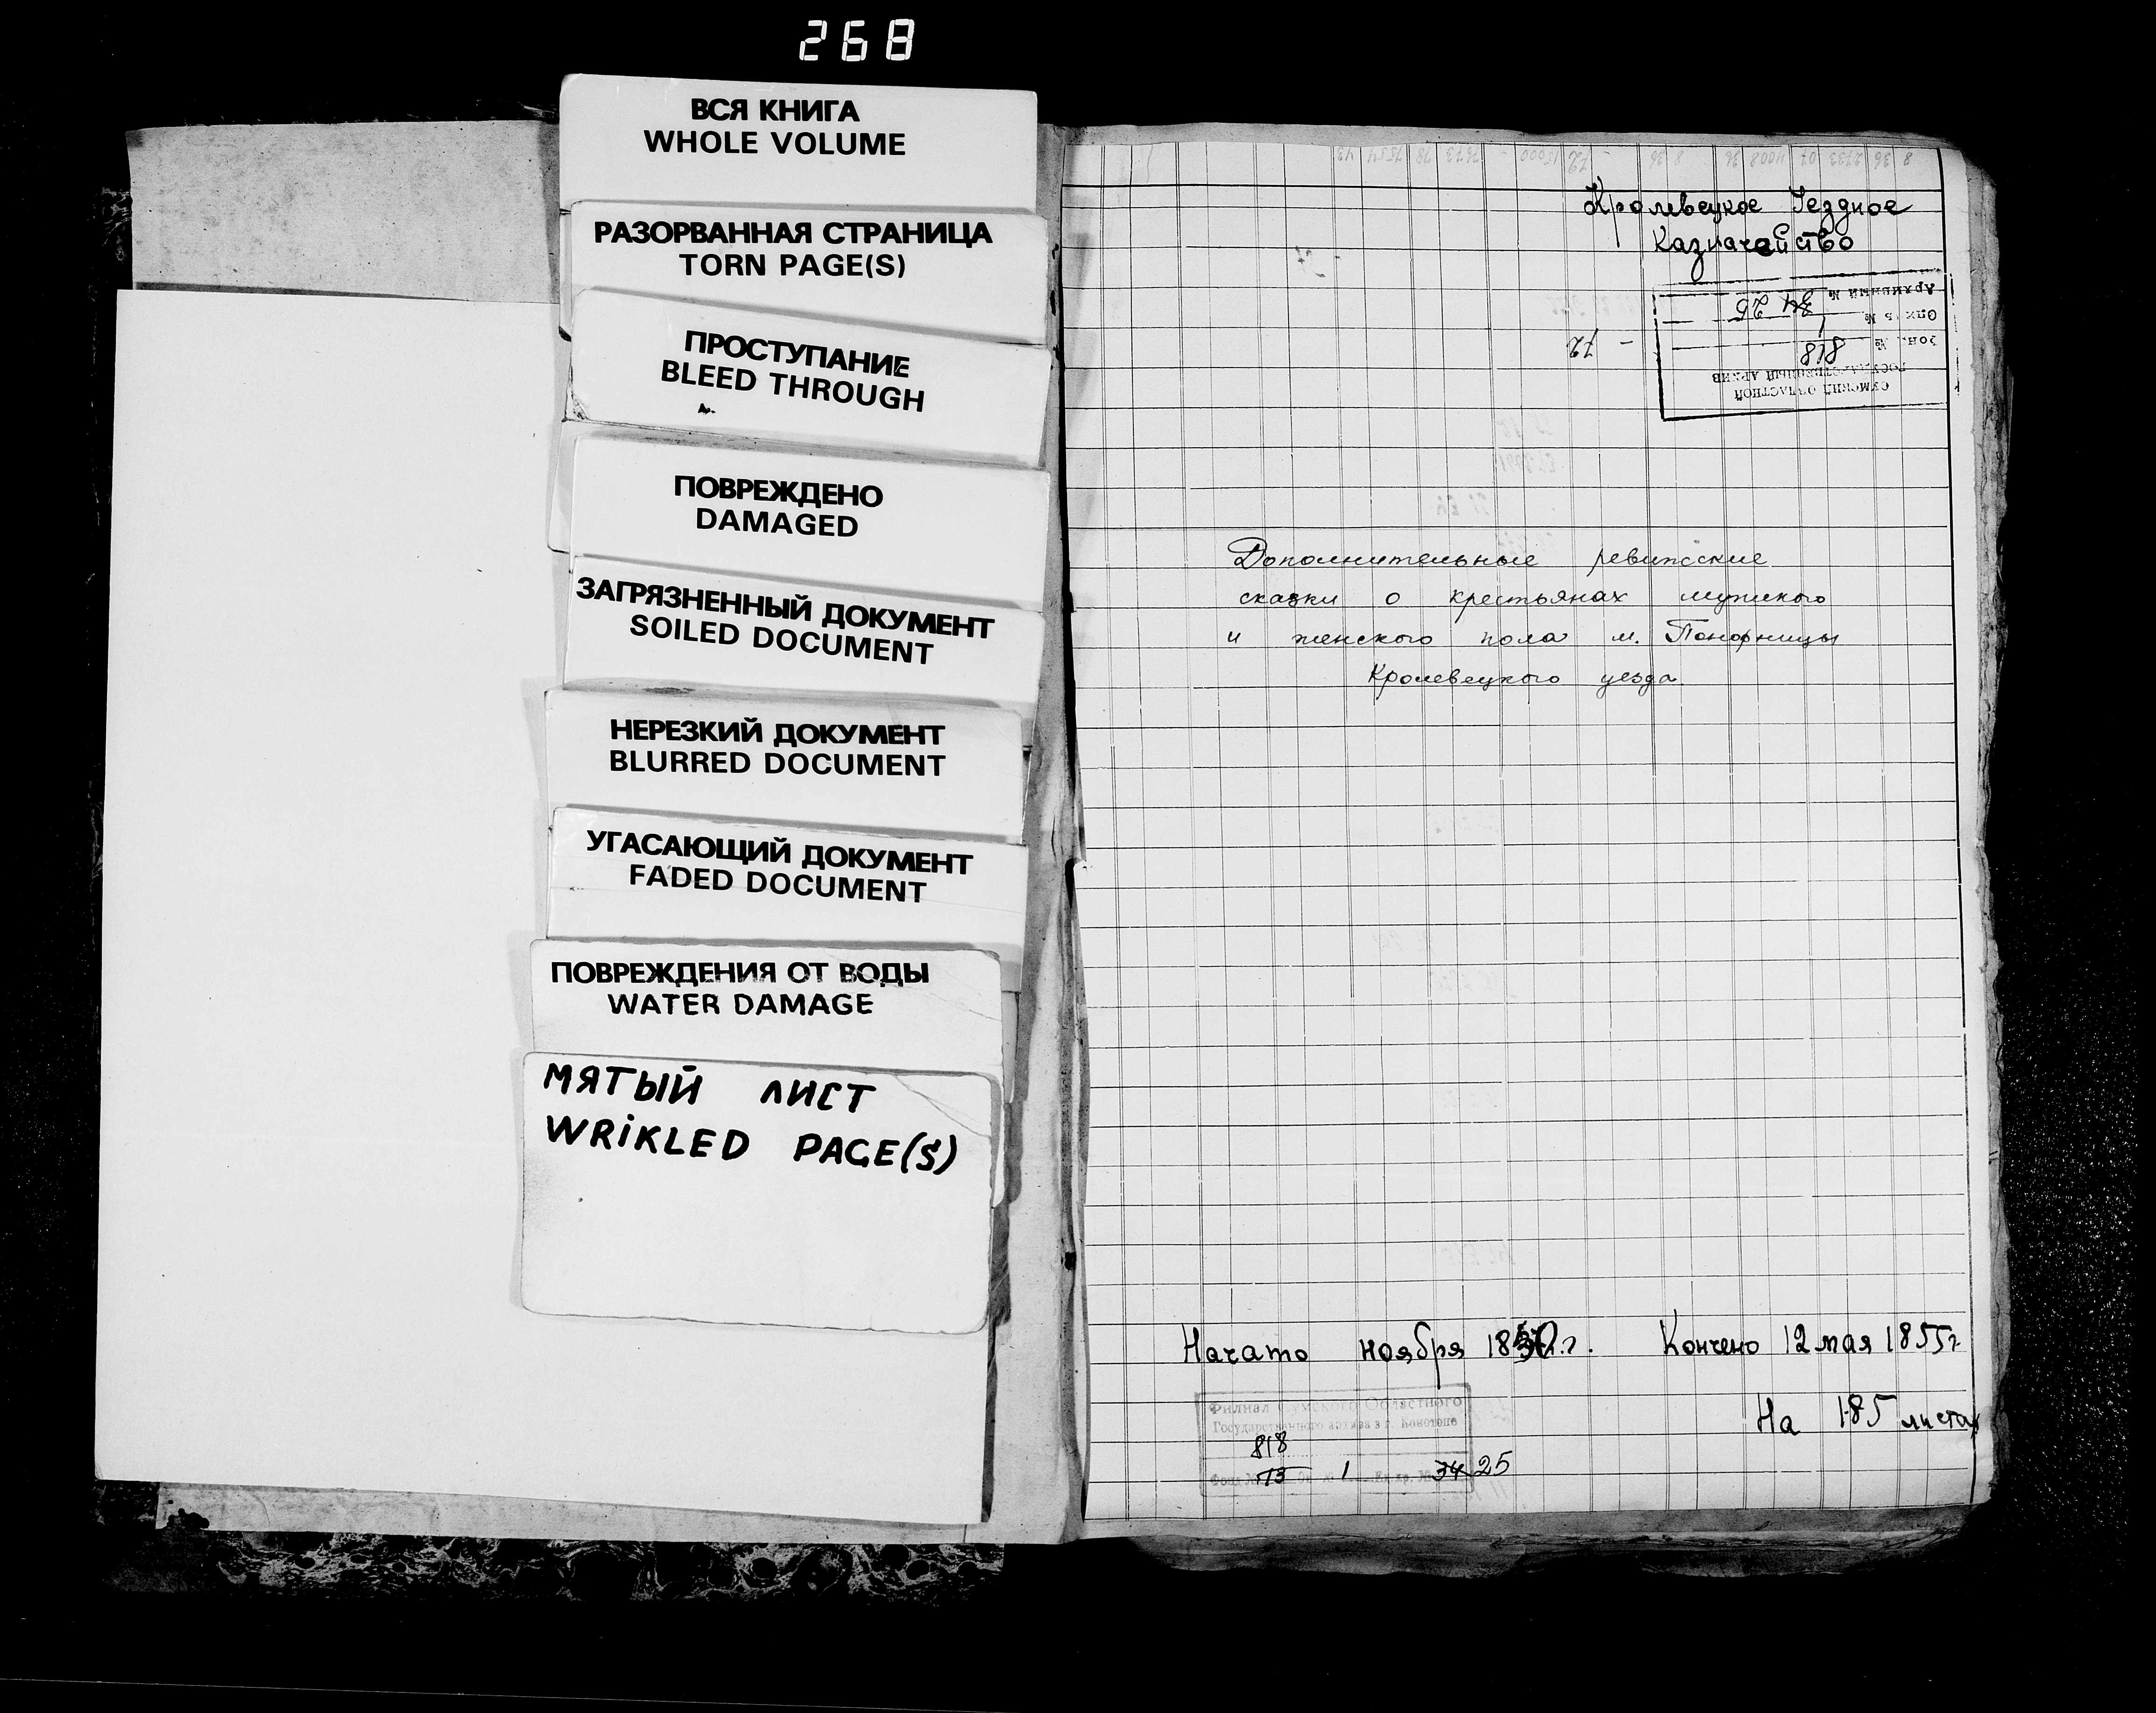 268
ВСЯ КНИГА
WHOLE VOLUME
РАЗОРВАННАЯ СТРАНИЦА
TORN PAGE(S)
ПРОСТУПАНИЕ
BLEED THROUGH
ПОВРЕЖДЕНО
DAMAGED
ЗАГРЯЗНЕННЫЙ ДОКУМЕНТ
SOILED DOCUMENT
НЕРЕЗКИЙ ДОКУМЕНТ
BLURRED DOCUMENT
УГАСАЮЩИЙ ДОКУМЕНТ
FADED DOCUMENT
ПОВРЕЖДЕНИЯ ОТ ВОДЫ
WATER DAMAGE
МЯТЫЙ ЛИСТ
WRIKLED PAGE(S)
Кролевецкое Уездное
Казначейство
СУМСКИЙ ОБЛАСТНОЙ
ГОСУДАРСТВЕННЫЙ АРХИВ
Фон. № 818
Опись № 1
Архивный № 34 25
72
Дополнительные ревизские
сказки о крестьянах мужского
и женского пола м. Понорницы
Кролевецкого уезда
Начато ноября 1850 г. Кончено 12 мая 1855 г.
На 185 листах
Филиал Сумского Областного
Государственного архива в г. Конотопе
818
Фонд 73 1 34 25